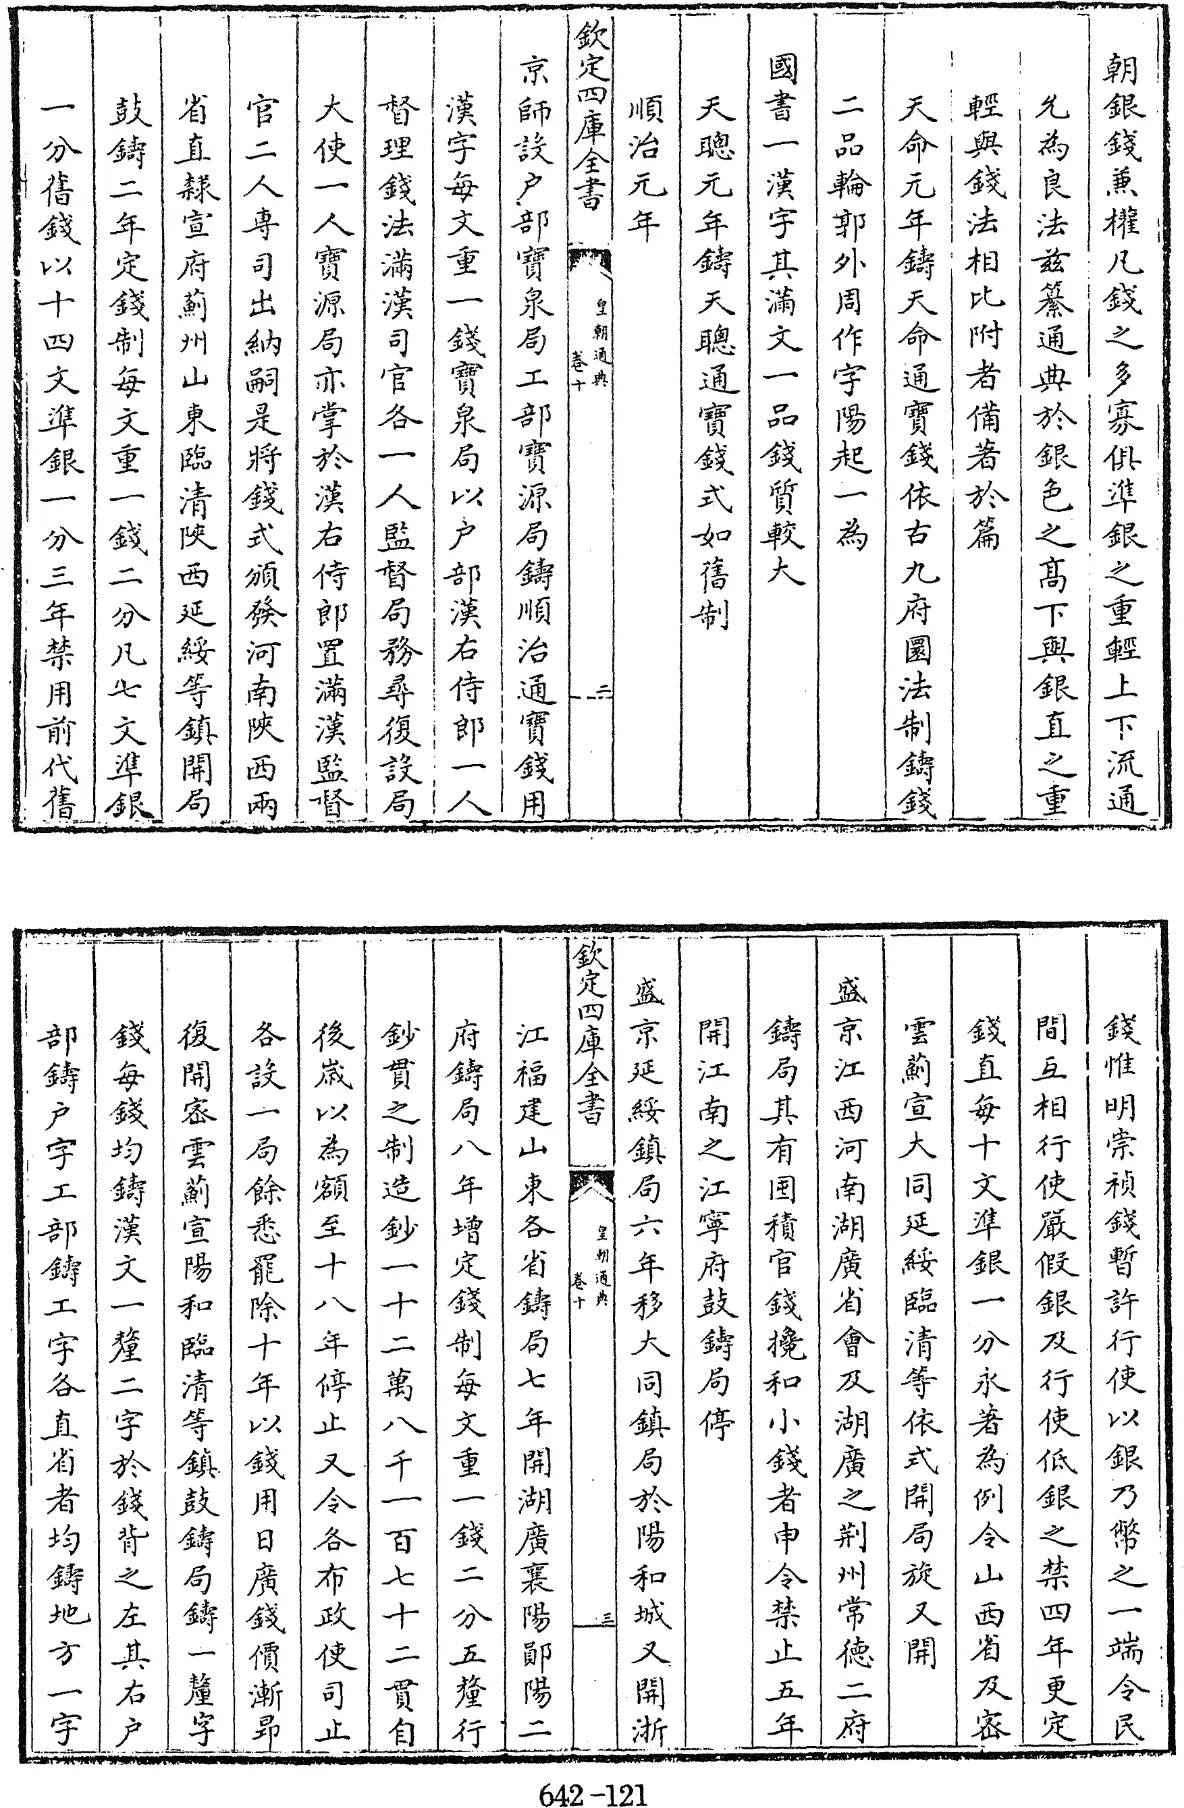 朝銀錢兼權凡錢之多寡俱準銀之重輕上下流通
允為良法茲纂通典於銀色之髙下與銀直之重
輕與錢法相比附者備著於篇
天命元年鑄天命通寳錢依古九府圜法制鑄錢
二品輪郭外周作字陽起一為
國書一漢字其滿文一品錢質較大
天聰元年鑄天聰通寳錢式如舊制
順治元年
欽定四庫全書
皇朝通典
卷十
二
京師設户部寳泉局工部寳源局鑄順治通寳錢用
漢字每文重一錢寳泉局以户部漢右侍郎一人
督理錢法滿漢司官各一人監督局務尋復設局
大使一人寳源局亦掌於漢右侍郎置滿漢監督
官二人専司出納嗣是將錢式頒發河南陜西兩
省直隸宣府薊州山東臨清陜西延綏等鎮開局
鼓鑄二年定錢制每文重一錢二分凡七文準銀
一分舊錢以十四文準銀一分三年禁用前代舊
錢惟明崇禎錢暫許行使以銀乃幣之一端令民
間互相行使嚴假銀及行使低銀之禁四年更定
錢直每十文準銀一分永著為例令山西省及宻
雲薊宣大同延綏臨清等依式開局旋又開
盛京江西河南湖廣省會及湖廣之荆州常徳二府
鑄局其有囤積官錢攙和小錢者申令禁止五年
開江南之江寧府鼓鑄局停
盛京延綏鎮局六年移大同鎮局於陽和城又開浙
欽定四庫全書
皇朝通典
卷十
三
江福建山東各省鑄局七年開湖廣襄陽鄖陽二
府鑄局八年增定錢制每文重一錢二分五釐行
鈔貫之制造鈔一十二萬八千一百七十二貫自
後嵗以為額至十八年停止又令各布政使司止
各設一局餘悉罷除十年以錢用日廣錢價漸昻
復開宻雲薊宣陽和臨清等鎮鼓鑄局鑄一釐字
錢每錢均鑄漢文一釐二字於錢背之左其右户
部鑄户字工部鑄工字各直省者均鑄地方一字
642-121